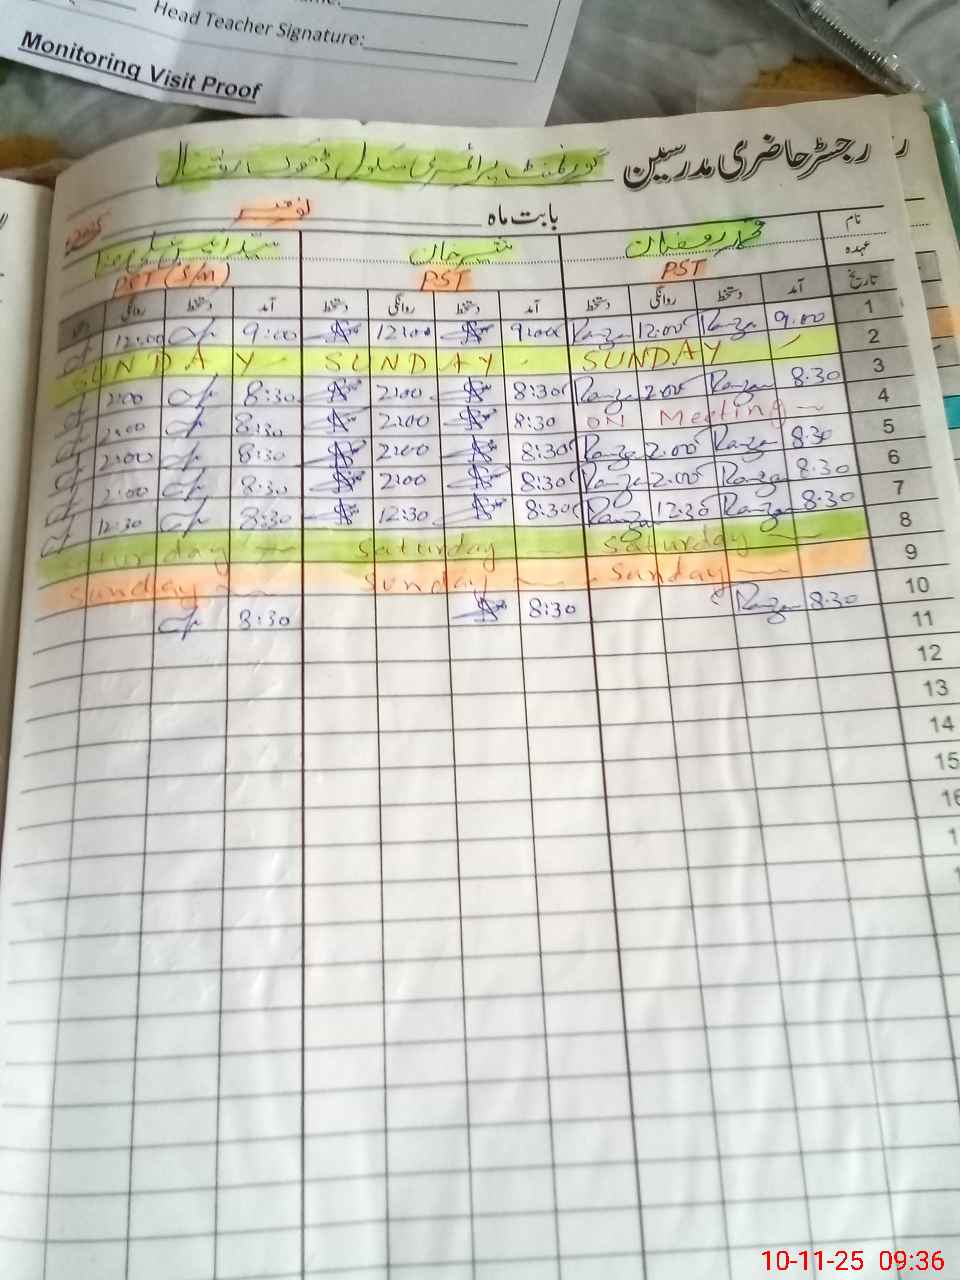 Head Teacher Signature:
Monitoring Visit Proof
رجسٹر حاضری مدرسین
گورنمنٹ پرائمری سکول ڈھوک
بابت ماہ نومبر 2025
نام
محمد رمضان
خان
عہدہ
PST PST PST (S/M)
تاریخ آمد دستخط روانگی دستخط آمد دستخط روانگی دستخط آمد دستخط روانگی
1 9:00 Ramzan 12:00 Ramzan 9:00 12:00 9:00 12:00
2 SUNDAY SUNDAY SUNDAY
3 8:30 Ramzan 2:00 Ramzan 8:30 2:00 8:30 2:00
4 ON Meeting 8:30 2:00 8:30 2:00
5 8:30 Ramzan 2:00 Ramzan 8:30 2:00 8:30 2:00
6 8:30 Ramzan 2:00 Ramzan 8:30 2:00 8:30 2:00
7 8:30 Ramzan 12:30 Ramzan 8:30 12:30 8:30 12:30
8 Saturday Saturday Saturday
9 Sunday Sunday Sunday
10 8:30 Ramzan 8:30 8:30
11
12
13
14
15
16
10-11-25 09:36